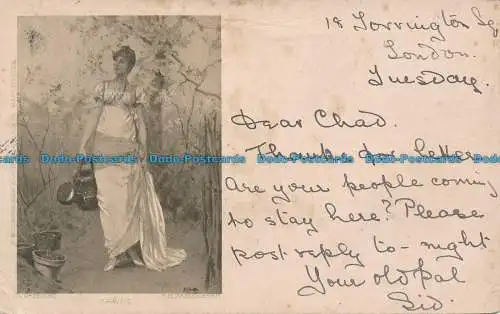 18 Torrington Sq
London.
Tuesday.
Dear Chad.
Thank for letter
Are your people coming
to stay here? Please
post reply to-night
Your old pal
Sid.
Dodo-Postcards Dodo-Postcards Dodo-Postcards Dodo-Postcards Dodo-Postcards Dodo-Postcards